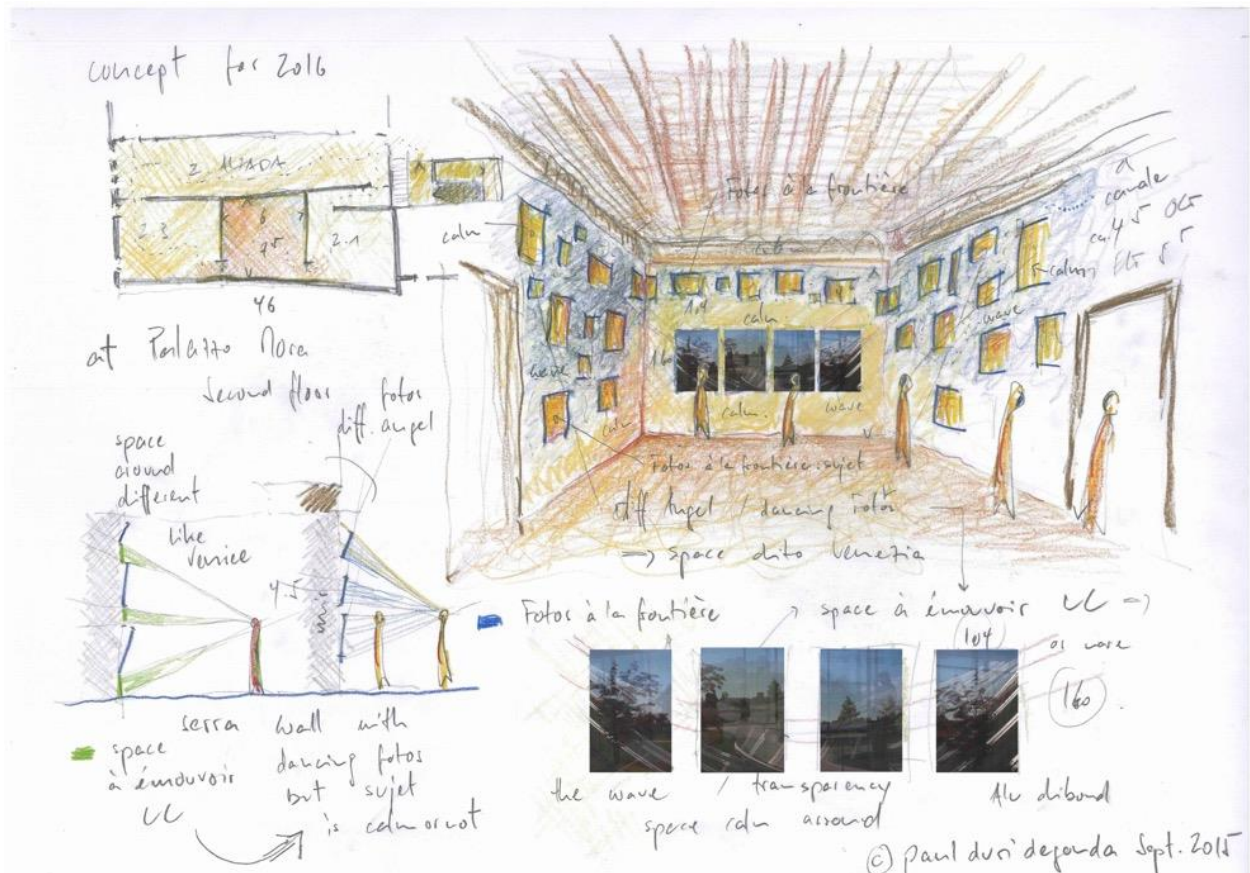 concept for 2016
2 ALZADA
2.3
6
45
2.1
46
at Palazzo Mora
second floor
fotos
diff. angel
space
around
different
like
Venice
4.5
serra wall with
dancing fotos
but sujet
is calm or not
space
à émouvoir
LC
Fotos à la frontière
calm
calm
wave
wave
160
calm.
calm.
wave
calm
Fotos à la frontière: sujet
diff Angel / dancing Fotos
=> space dito Venezia
Fotos à la frontière
space à émouvoir LC =>
104
160
the wave
transparency
space calm around
Alu dibond
© paul duri degonda Sept. 2015